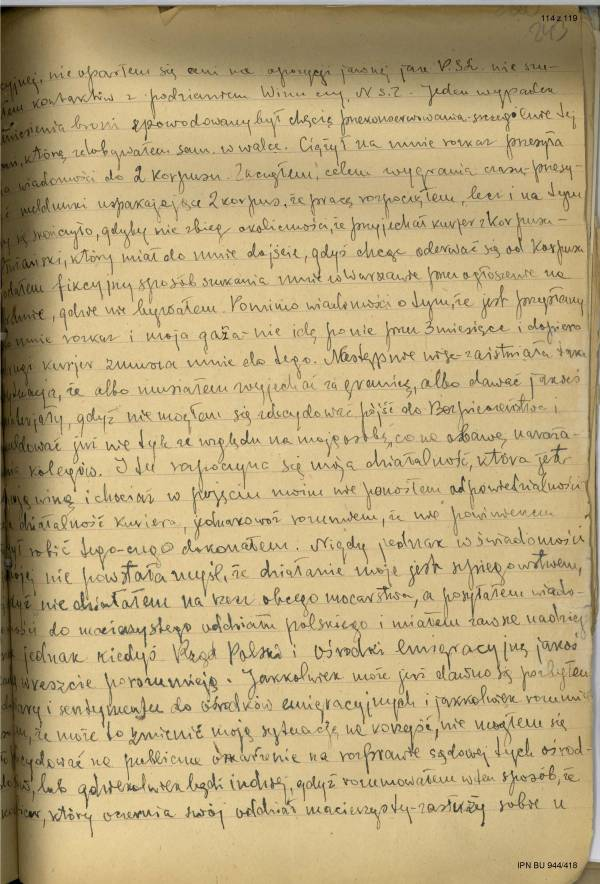 114 z 119
243
cyjnej, nie oparłem się ani na opozycji jawnej jak P.S.L. nie szu-
łem kontaktów z podziemiem Winu czy, N.S.Z. Jeden wypadek
zniesienia broni spowodowany był chęcią przekonserwowania szczególnie tej
broni, którą zdobywałem sam w walce. Ciążył na mnie rozkaz przesyła
a wiadomości do 2 Korpusu. Zacząłem, celem wygrania czasu-przesy-
ć meldunki uspakajające 2 korpus, że pracę rozpocząłem, lecz i na tym
by się skończyło, gdyby nie zbieg okoliczności, że przyjechał kurjer z Korpusu-
miański, który miał do mnie dojście, gdyż chcąc oderwać się od Korpusu
odałem fikcyjny sposób szukania mnie w Warszawie przez ogłoszenie na
, gdzie nie bywałem. Pomimo wiadomości o tym, że jest przysłany
o mnie rozkaz i moja gaża-nie idę po nie przez 3 miesiące i dopiero
rugi kurjer zmusza mnie do tego. Następnie więc zaistniała taka
sytuacja, że albo musiałem wyjechać za granicę, albo dawać jakieś
materjały, gdyż nie mogłem się zdecydować pójść do Bezpieczeństwa i
meldować już nie tyle ze względu na moją osobę, co na obawę naraża-
nia kolegów. I tu rozpoczyna się moja działalność, która jest
moją winą i chociaż w pojęciu moim nie ponosłem odpowiedzialności
a działalność kuriera, jednakowoż rozumiem, że nie powinienem
był robić tego-czego dokonałem. Nigdy jednak w świadomości
mojej nie powstała myśl, że działanie moje jest szpiegowstwem,
gdyż nie działałem na rzecz obcego mocarstwa, a posyłałem wiado-
mości do macierzystego oddziału polskiego i miałem zawsze nadzieję
że jednak kiedyś Rząd Polski i Ośrodki emigracyjne jakoś
wreszcie porozumieją. Jakkolwiek może już dawno się pozbyłem
wiary i sentymentu do ośrodków emigracyjnych i jakkolwiek rozumia
łem, że może to zmienić moją sytuację na korzyść, nie mogłem się
zdecydować na publiczne oskarżenie na rozprawie sądowej tych ośrod-
ków, lub gdziekolwiek bądź indziej, gdyż rozumowałem w ten sposób, że
, który oczernia swój oddział macierzysty-zasłuży sobie u
IPN BU 944/418